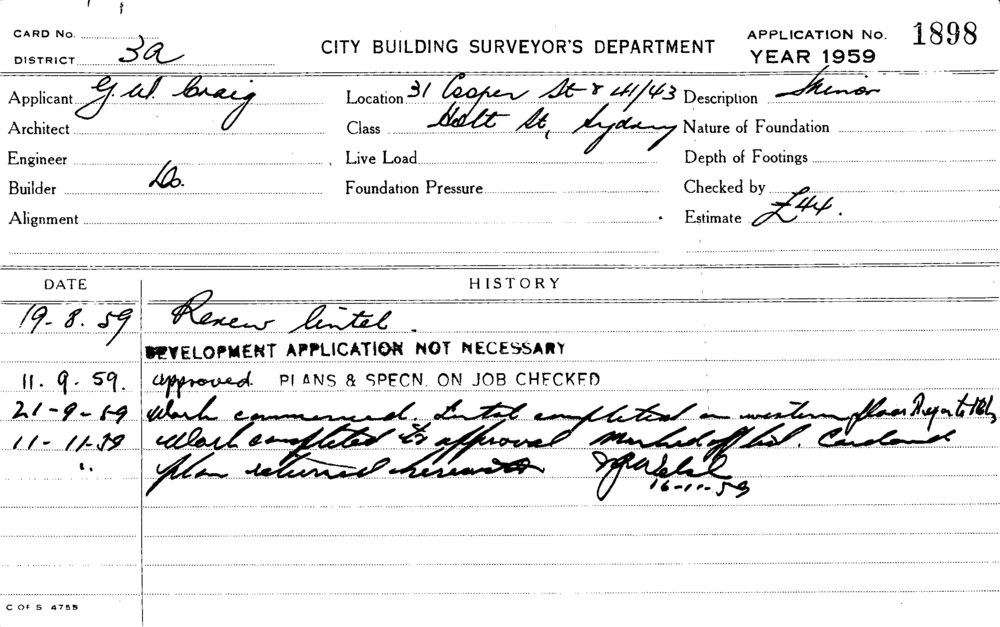 CARD No.
DISTRICT 3a
CITY BUILDING SURVEYOR'S DEPARTMENT
APPLICATION No. 1898
YEAR 1959
Applicant G. W. Craig
Location 31 Cooper St & 41/43
Description Minor
Architect
Class Holt St, Sydney
Nature of Foundation
Engineer
Live Load
Depth of Footings
Builder Do.
Foundation Pressure
Checked by
Alignment
Estimate £44.
DATE HISTORY
19-8.59 Renew lintel.
DEVELOPMENT APPLICATION NOT NECESSARY
11.9.59. approved PLANS & SPECN. ON JOB CHECKED
21-9-59 Work commenced. Lintel completed on western floor
11-11-59 Work completed to approval Marked off list. Card and
" plan returned herewith
16-11-59
C OF S 4755